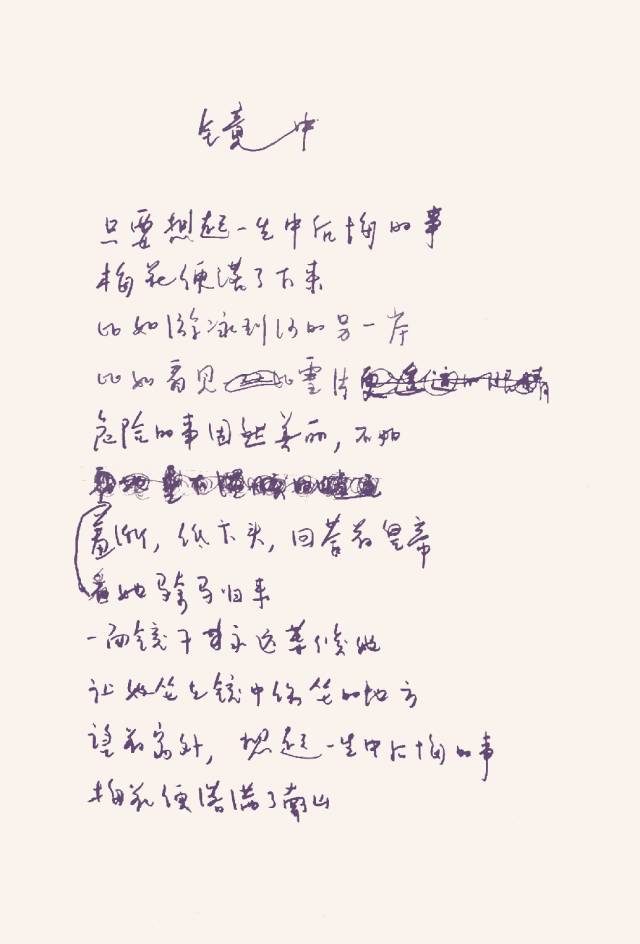 镜中
只要想起一生中后悔的事
梅花便落了下来
比如游泳到河的另一岸
比如看见比雪片更遥远的眼睛
危险的事固然美丽，不如
羞惭，低下头，回答着皇帝
看她骑马归来
一面镜子永远等候她
让她坐在镜中坐的地方
望着窗外，想起一生中后悔的事
梅花便落满了南山